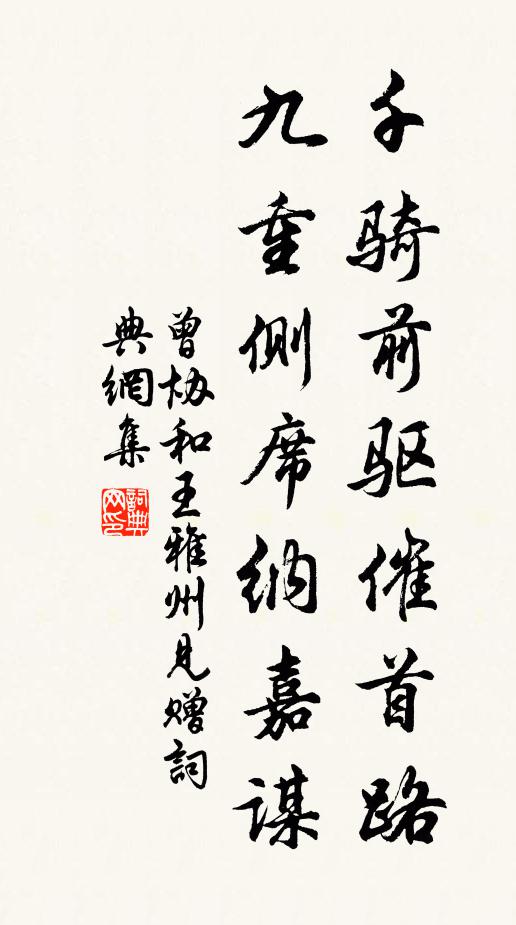 千骑前驱催首路
九重侧席纳嘉谋
曾协和王雅州见赠詞
典網集
詞典网印